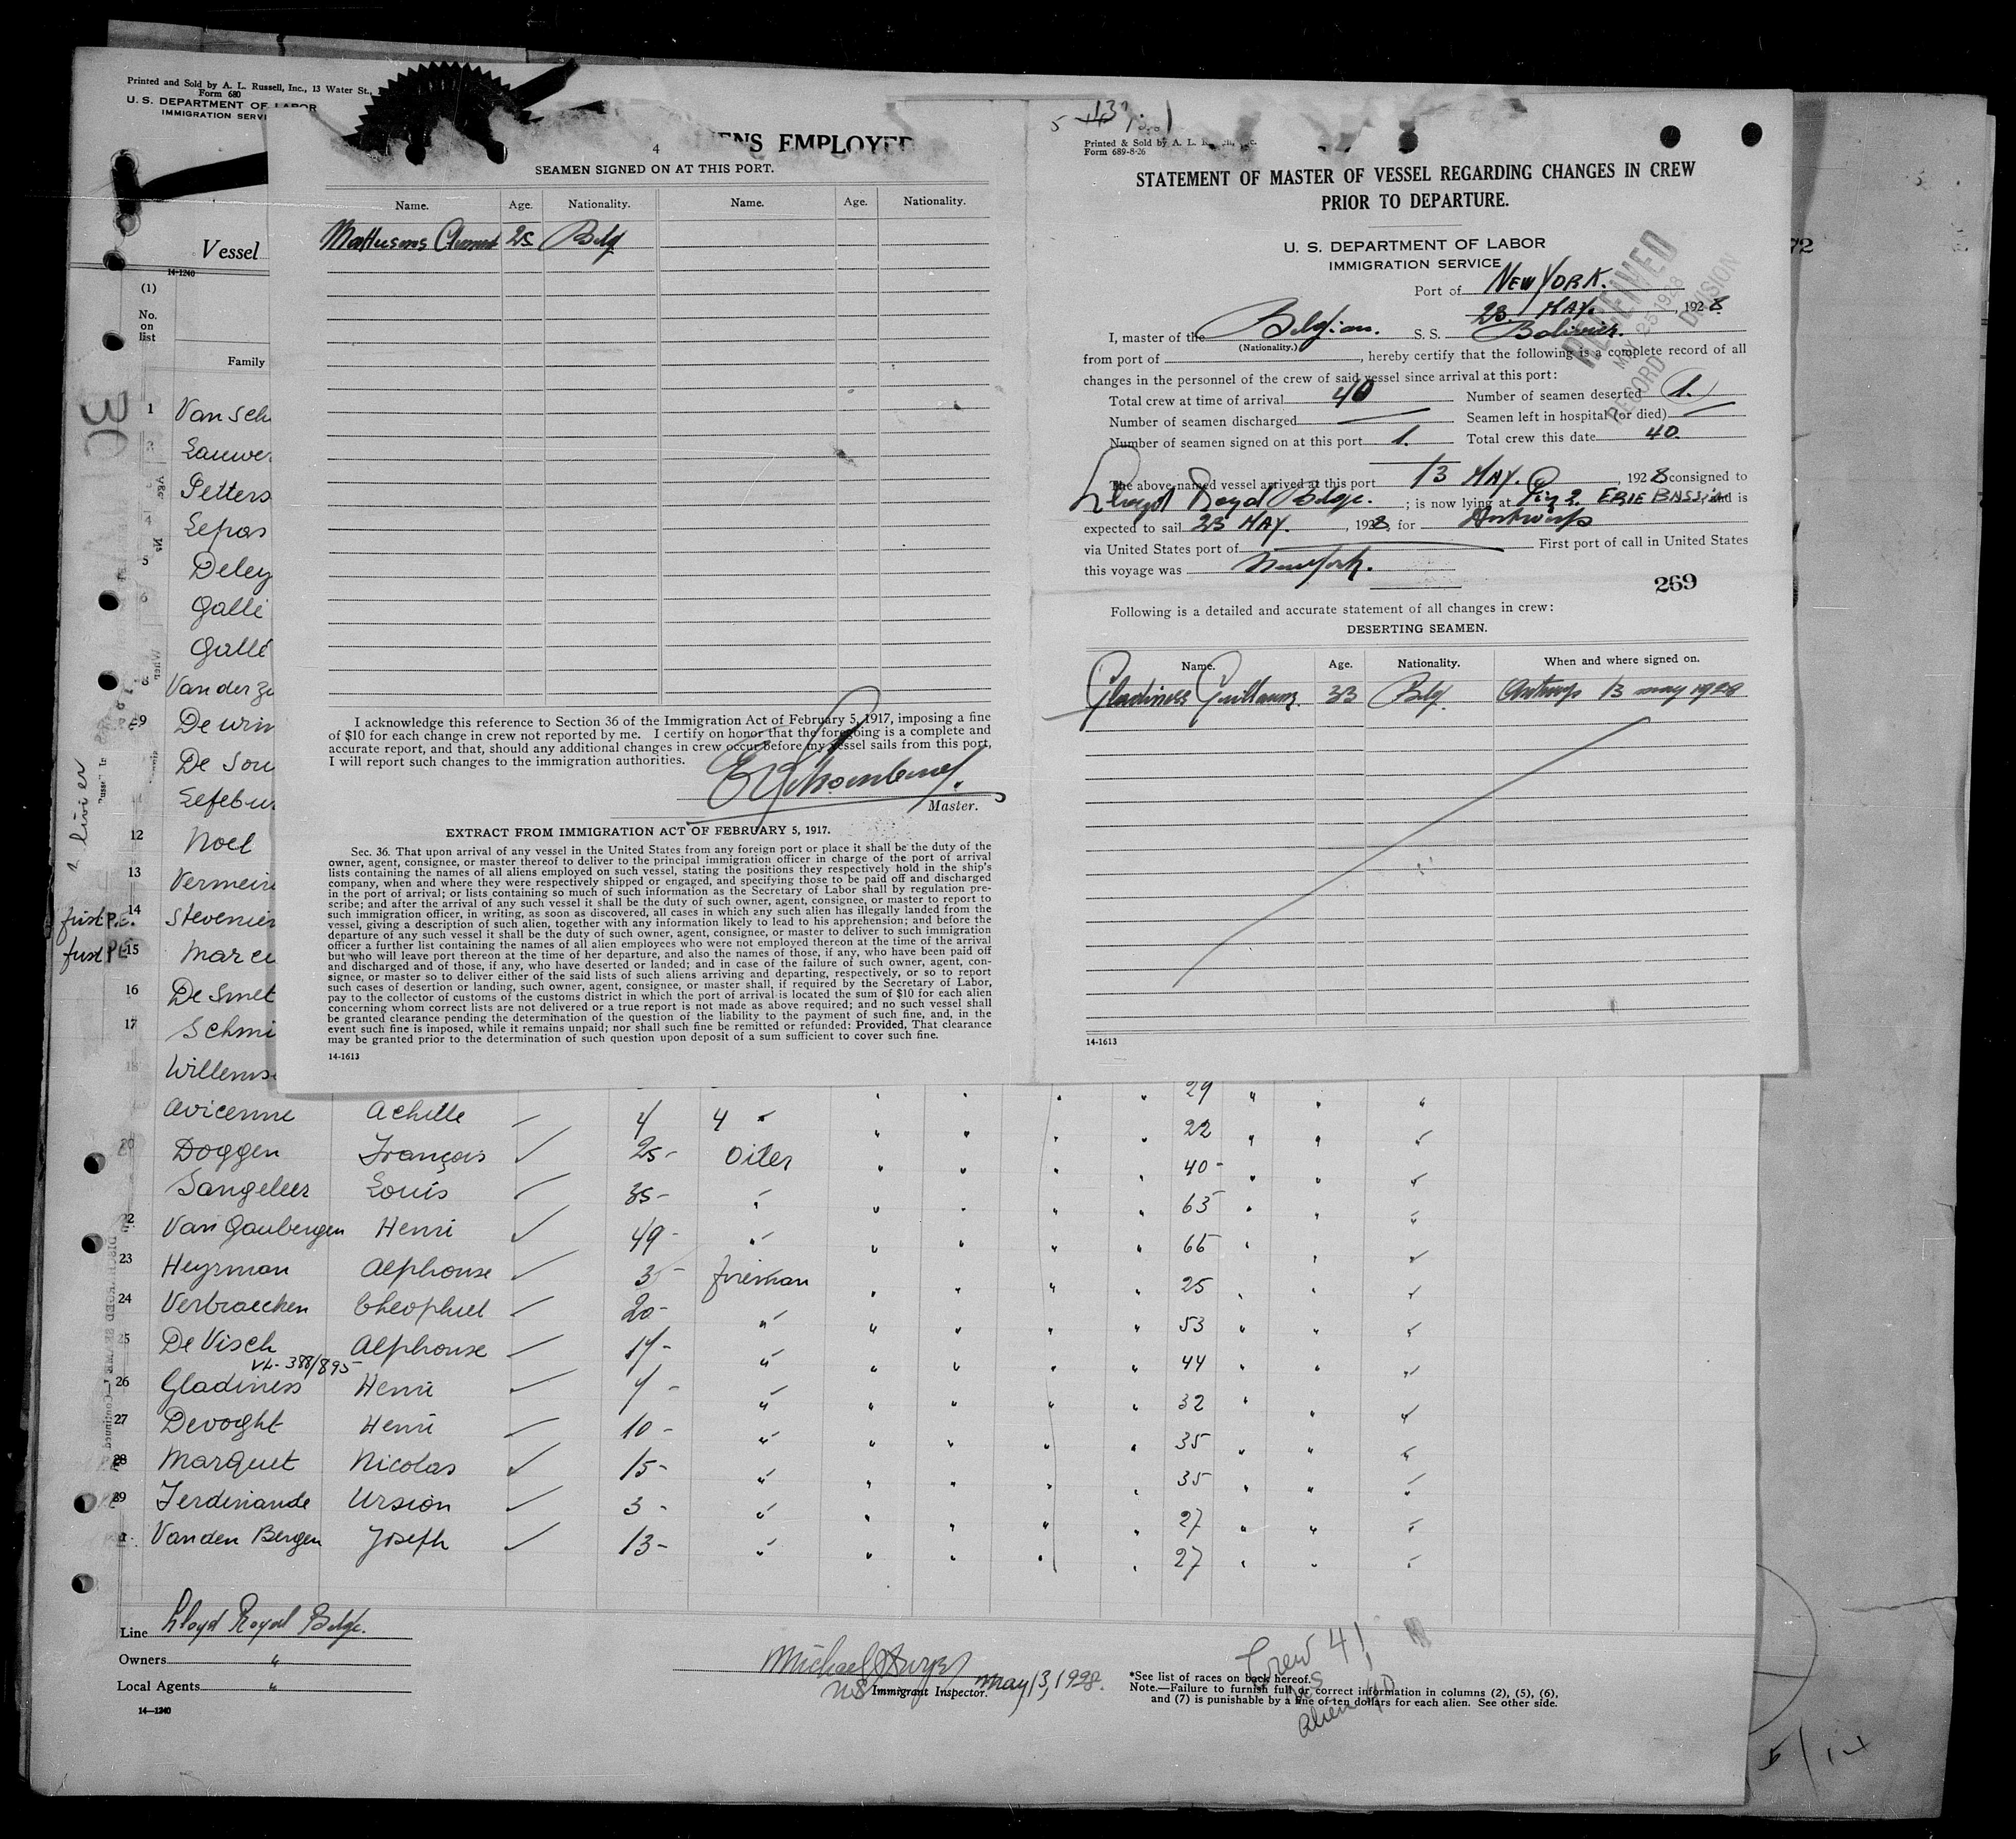 Printed and Sold by A. L. Russell, Inc., 13 Water St.,
Form 680
U. S. DEPARTMENT OF LABOR
IMMIGRATION SERVI
Vessel
14-1240
(1)
No.
on
list
Family
1 Van Sch
Lauwer
Petters
4 Lepas
5 Deley
6 Galli
Galli
8 Van der Ze
9 De Win
De Sou
Lefebur
12 Noel
13 Vermeire
first P.E. 14 Stevenier
first P.E. 15 Marce
16 De Smet
17 Schmi
18 Willems
EMPLOYED
4
SEAMEN SIGNED ON AT THIS PORT.
Name. Age. Nationality. Name. Age. Nationality.
25 Belg
I acknowledge this reference to Section 36 of the Immigration Act of February 5, 1917, imposing a fine
of $10 for each change in crew not reported by me. I certify on honor that the foregoing is a complete and
accurate report, and that, should any additional changes in crew occur before my vessel sails from this port,
I will report such changes to the immigration authorities.
Master.
EXTRACT FROM IMMIGRATION ACT OF FEBRUARY 5, 1917.
Sec. 36. That upon arrival of any vessel in the United States from any foreign port or place it shall be the duty of the
owner, agent, consignee, or master thereof to deliver to the principal immigration officer in charge of the port of arrival
lists containing the names of all aliens employed on such vessel, stating the positions they respectively hold in the ship's
company, when and where they were respectively shipped or engaged, and specifying those to be paid off and discharged
in the port of arrival; or lists containing so much of such information as the Secretary of Labor shall by regulation pre-
scribe; and after the arrival of any such vessel it shall be the duty of such owner, agent, consignee, or master to report to
such immigration officer, in writing, as soon as discovered, all cases in which any such alien has illegally landed from the
vessel, giving a description of such alien, together with any information likely to lead to his apprehension; and before the
departure of any such vessel it shall be the duty of such owner, agent, consignee, or master to deliver to such immigration
officer a further list containing the names of all alien employees who were not employed thereon at the time of the arrival
but who will leave port thereon at the time of her departure, and also the names of those, if any, who have been paid off
and discharged and of those, if any, who have deserted or landed; and in case of the failure of such owner, agent, con-
signee, or master so to deliver either of the said lists of such aliens arriving and departing, respectively, or so to report
such cases of desertion or landing, such owner, agent, consignee, or master shall, if required by the Secretary of Labor,
pay to the collector of customs of the customs district in which the port of arrival is located the sum of $10 for each alien
concerning whom correct lists are not delivered or a true report is not made as above required; and no such vessel shall
be granted clearance pending the determination of the question of the liability to the payment of such fine, and, in the
event such fine is imposed, while it remains unpaid; nor shall such fine be remitted or refunded: Provided, That clearance
may be granted prior to the determination of such question upon deposit of a sum sufficient to cover such fine.
14-1613
Printed & Sold by A. L.
Form 689-8-26
STATEMENT OF MASTER OF VESSEL REGARDING CHANGES IN CREW
PRIOR TO DEPARTURE.
U. S. DEPARTMENT OF LABOR
IMMIGRATION SERVICE
RECEIVED
MAY 25 1928
RECORD DIVISION
Port of NEW YORK.
23 MAY. , 1928
I, master of the Belgian. S. S. Bolivier.
(Nationality.)
from port of , hereby certify that the following is a complete record of all
changes in the personnel of the crew of said vessel since arrival at this port:
Total crew at time of arrival 40 Number of seamen deserted 1.
Number of seamen discharged Seamen left in hospital (or died)
Number of seamen signed on at this port 1. Total crew this date 40.
The above-named vessel arrived at this port 13 MAY. , 1928 consigned to
Lloyd Royal Belge. ; is now lying at Pier 2. ERIE BASSIN and is
expected to sail 23 MAY. , 1928, for Antwerp
via United States port of First port of call in United States
this voyage was New York.
269
Following is a detailed and accurate statement of all changes in crew:
DESERTING SEAMEN.
Name. Age. Nationality. When and where signed on.
Gladiness Guillaume. 33 Belg. Antwerp 13 may 1928
14-1613
29
Avicenne Achille 4 4 " 22
20 Doggen François 25- Oiler 40-
Sangeleer Louis 35- " 63
22 Van Gaubergen Henri 49- " 65
23 Heyrman Alphonse 3 fireman 25
24 Verbraecken Theophiel 20- " 53
25 De Visch Alphonse 14- " 44
VL-388/895
26 Gladiness Henri 4- " 32
27 Devoght Henri 10- " 35
28 Marquet Nicolas 15- " 35
29 Ferdinande Ursion 3- " 27
Vanden Bergen Joseph 13- " 27
Line Lloyd Royal Belge.
Owners "
Local Agents "
14-1240
Michael
US Immigrant Inspector. May 13, 1928.
Crew 41
US
Alien 40
*See list of races on back hereof.
Note.—Failure to furnish full or correct information in columns (2), (5), (6),
and (7) is punishable by a fine of ten dollars for each alien. See other side.
72
5/14